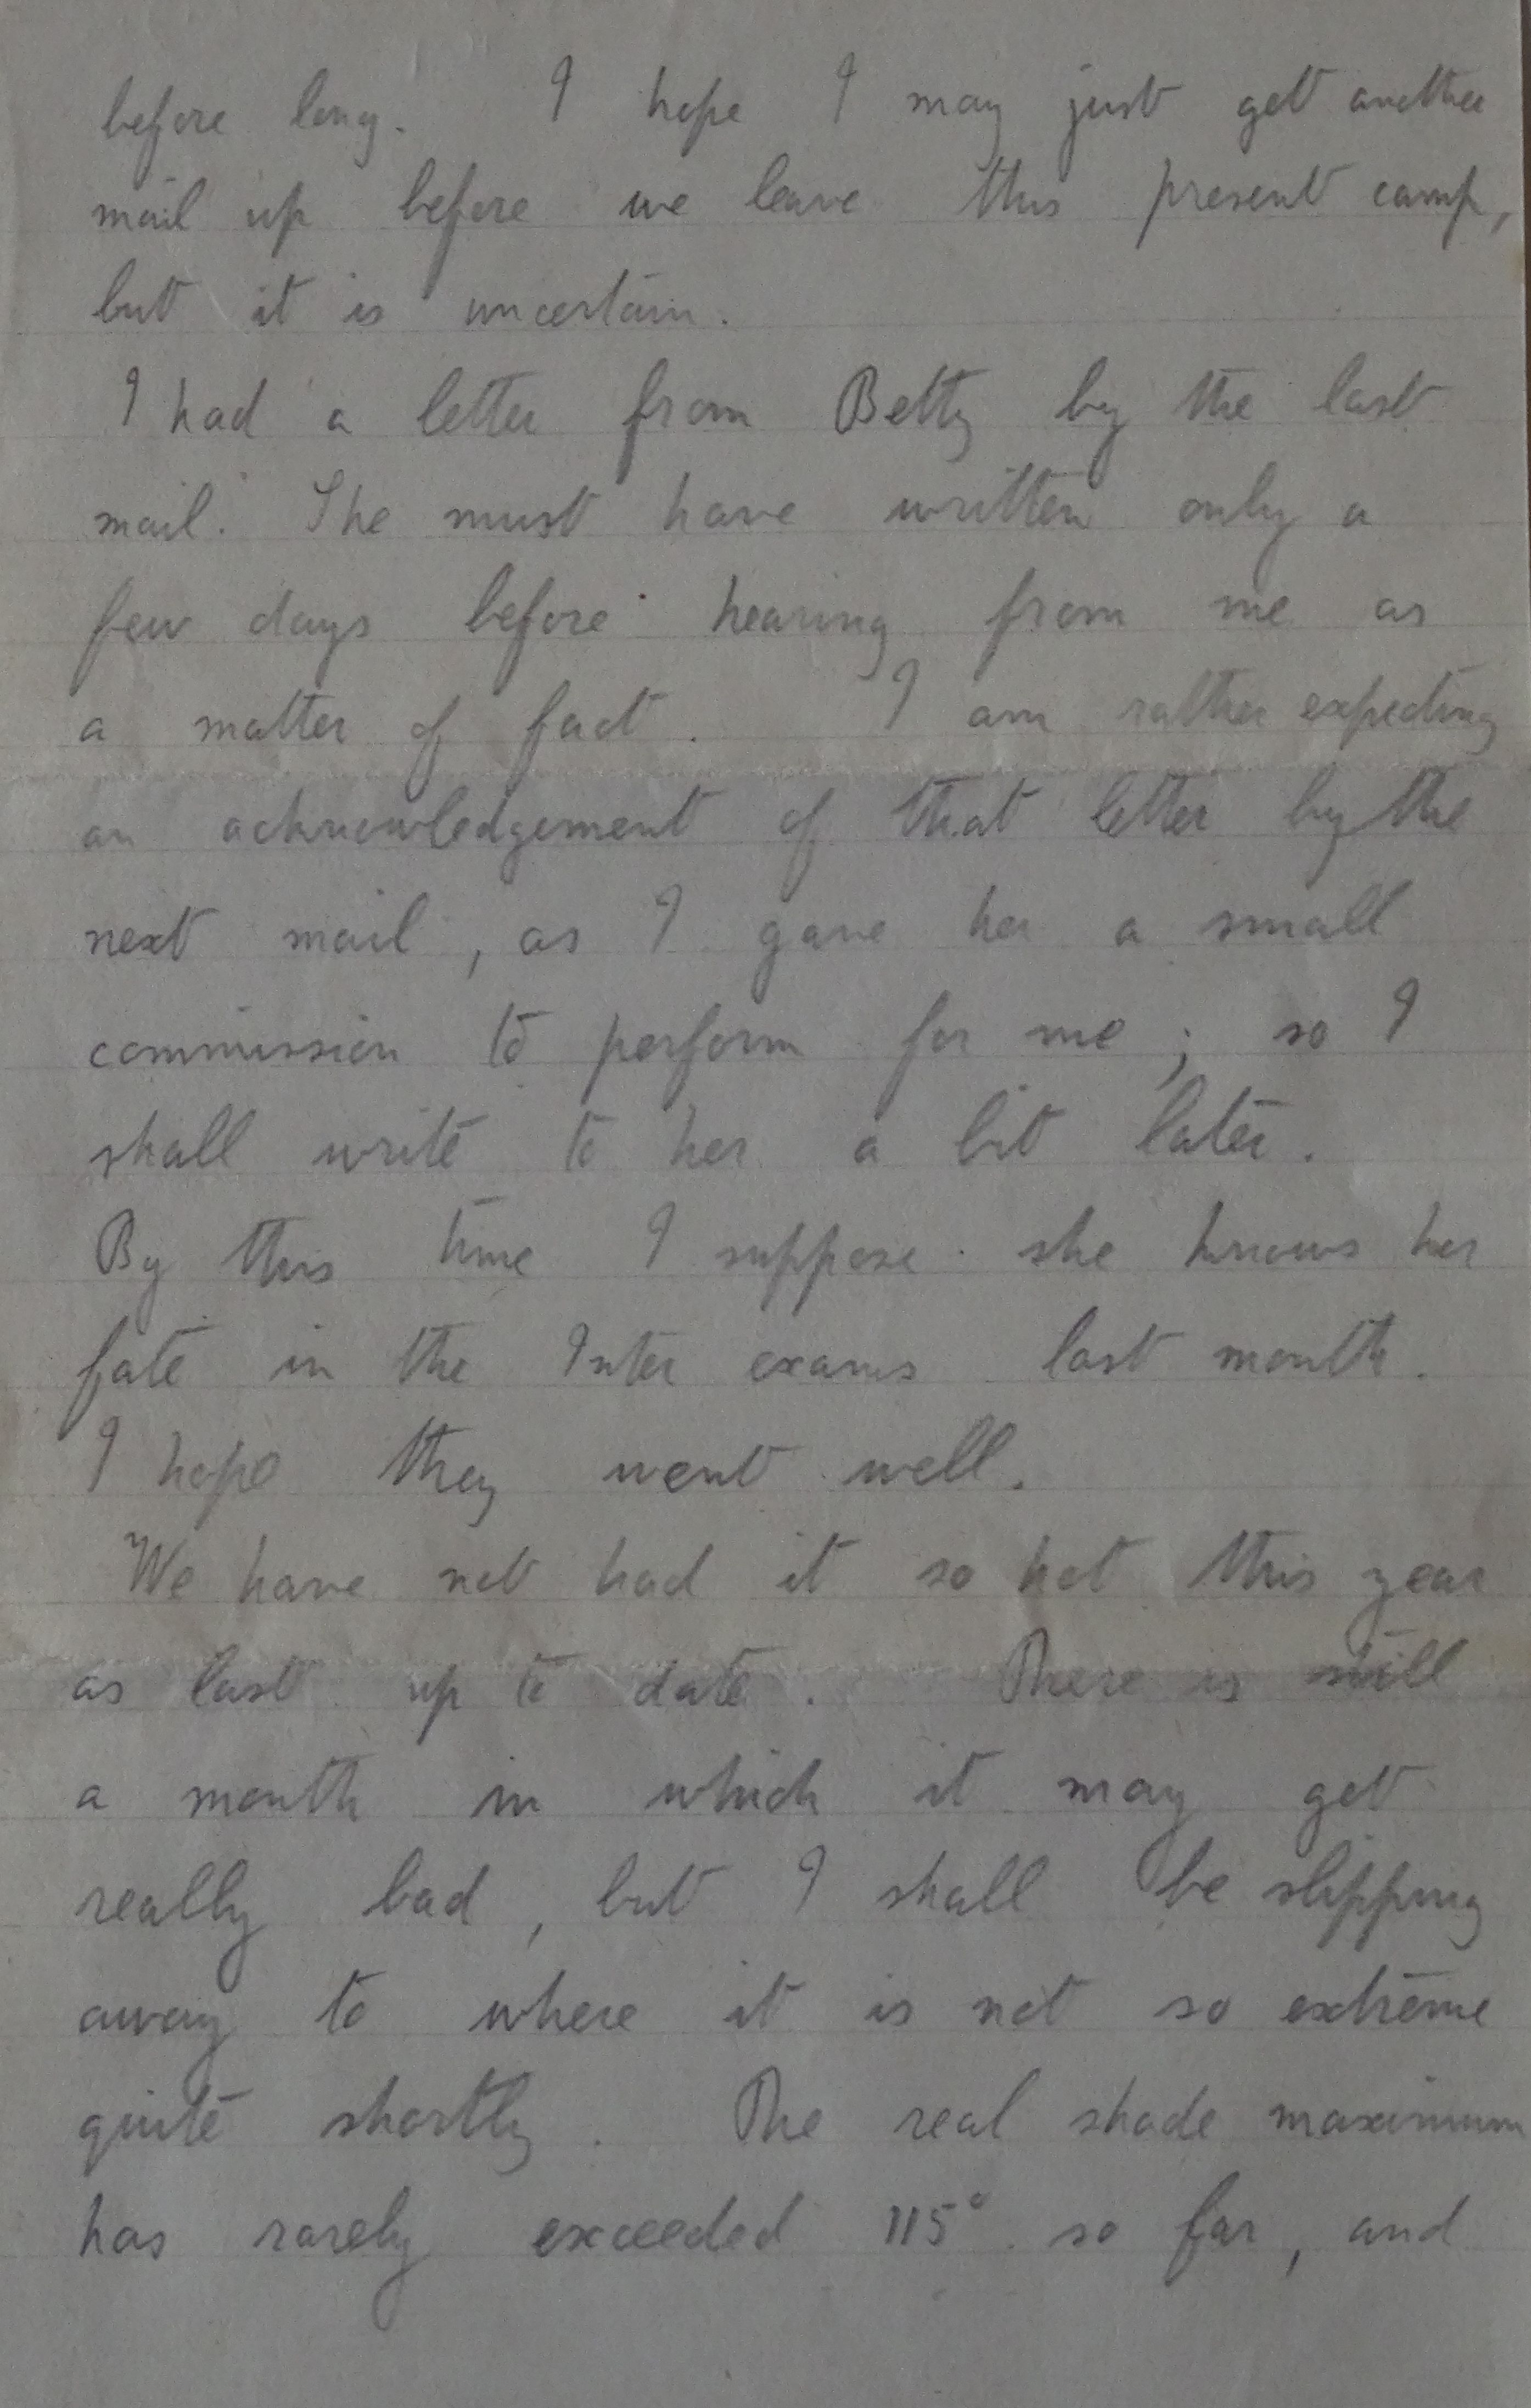 before long. I hope I may just get another
mail up before we leave this present camp,
but it is uncertain.
I had a letter from Betty by the last
mail. She must have written only a
few days before hearing from me as
a matter of fact. I am rather expecting
an acknowledgement of that letter by the
next mail, as I gave her a small
commission to perform for me; so I
shall write to her a bit later.
By this time I suppose she knows her
fate in the Inter exams last month.
I hope they went well.
We have not had it so hot this year
as last up to date. There is still
a month in which it may get
really bad, but I shall be slipping
away to where it is not so extreme
quite shortly. The real shade maximum
has rarely exceeded 115° so far, and